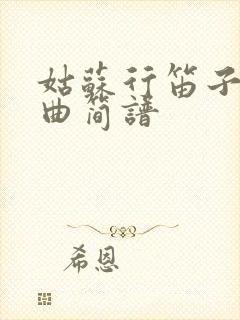 姑蘇行笛子
曲简譜
希恩